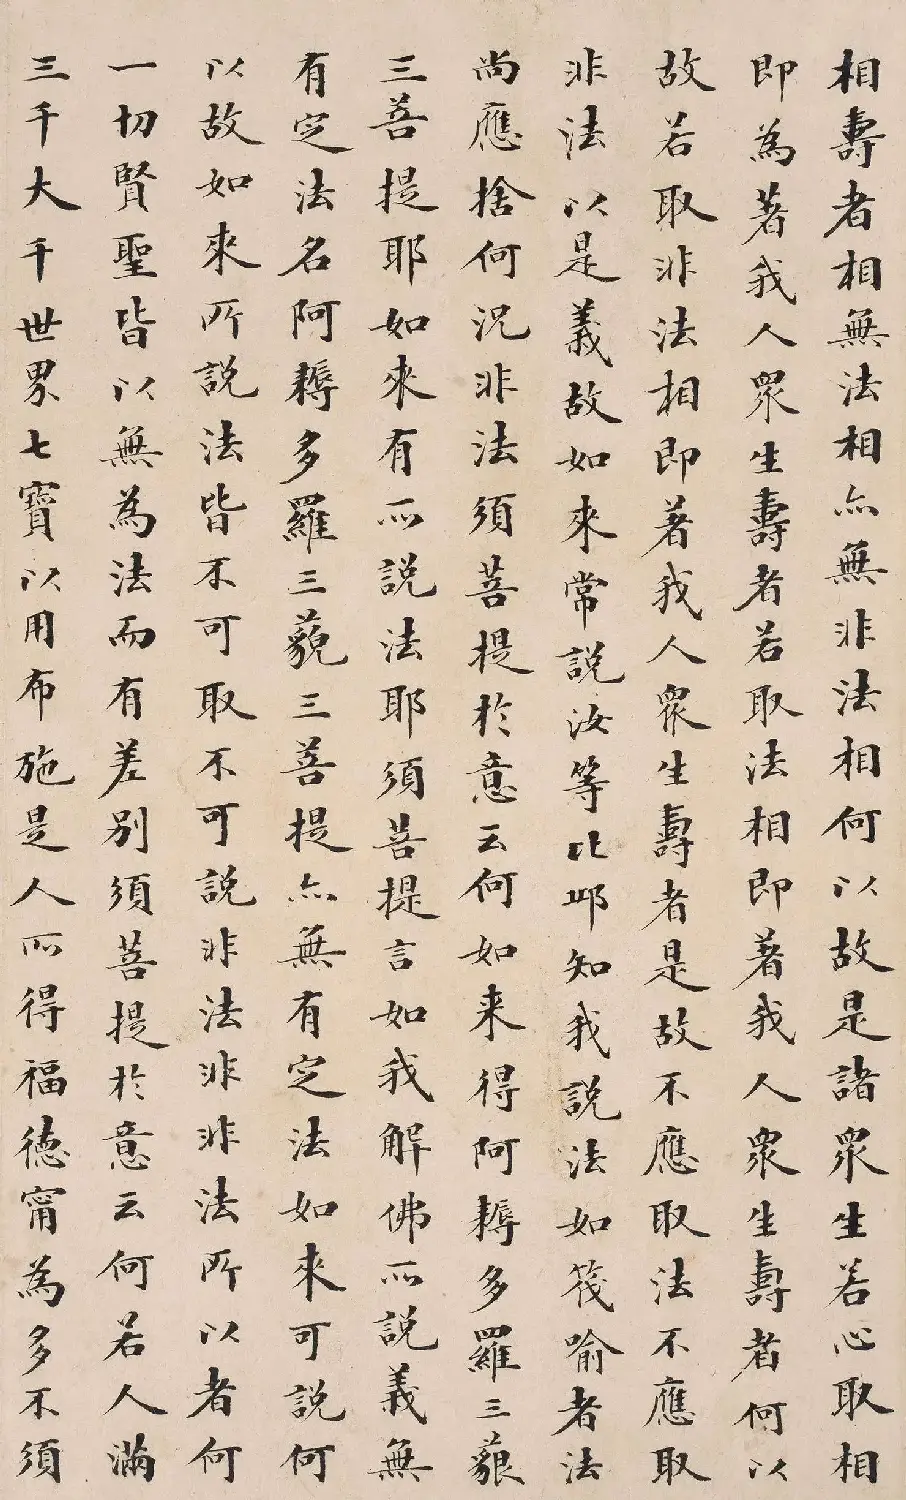 相壽者相無法相亦無非法相何以故是諸眾生若心取相
即為著我人眾生壽者若取法相即著我人眾生壽者何以
故若取非法相即著我人眾生壽者是故不應取法不應取
非法以是義故如來常說汝等比邱知我說法如筏喻者法
尚應捨何況非法須菩提於意云何如来得阿耨多羅三藐
三菩提耶如來有所說法耶須菩提言如我解佛所說義無
有定法名阿耨多羅三藐三菩提亦無有定法如來可說何
以故如來所說法皆不可取不可說非法非非法所以者何
一切賢聖皆以無為法而有差別須菩提於意云何若人滿
三千大千世界七寶以用布施是人所得福德甯為多不須